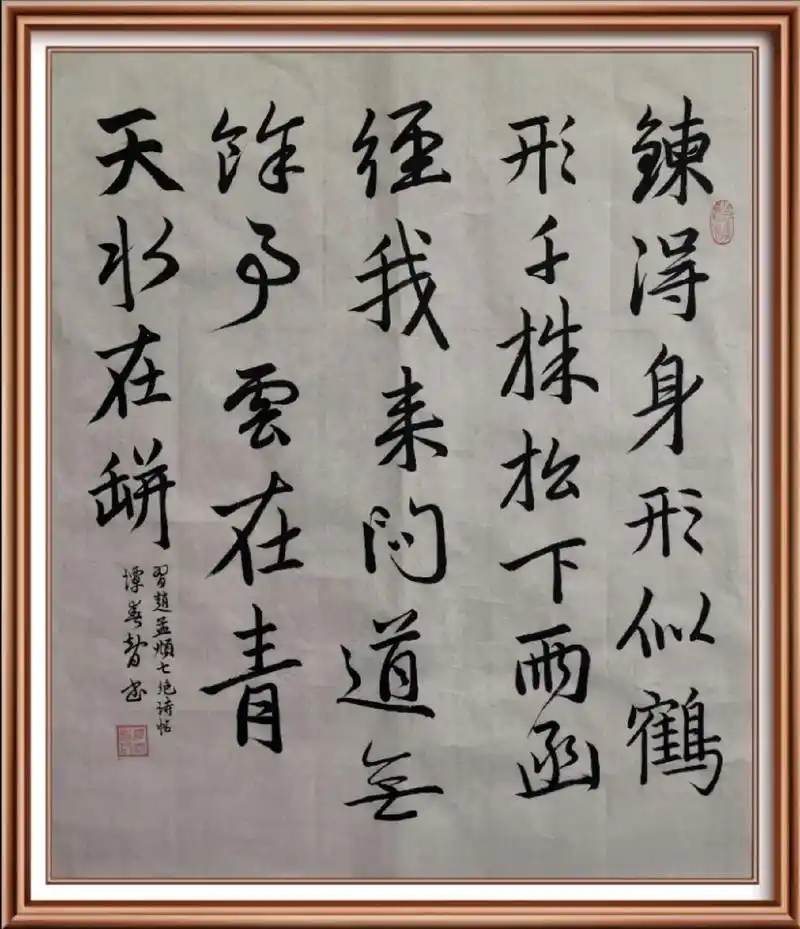 鍊得身形似鶴
形千株松下兩函
經我来問道無
餘事雲在青
天水在缾
習趙孟頫七絕詩帖
譚春智书